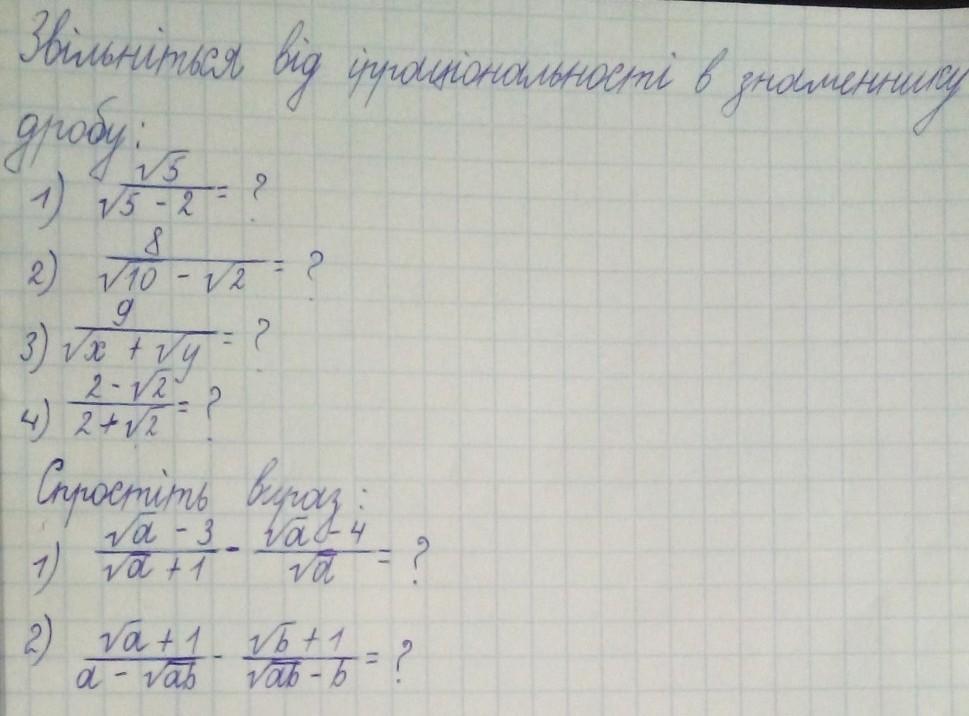 Звільніться від ірраціональності в знаменнику
дробу:
1) √5 / (√5 - 2) = ?
2) 8 / (√10 - √2) = ?
3) 9 / (√x + √y) = ?
4) (2 - √2) / (2 + √2) = ?
Спростіть вираз:
1) (√a - 3) / (√a + 1) - (√a - 4) / √a = ?
2) (√a + 1) / (a - √ab) - (√b + 1) / (√ab - b) = ?